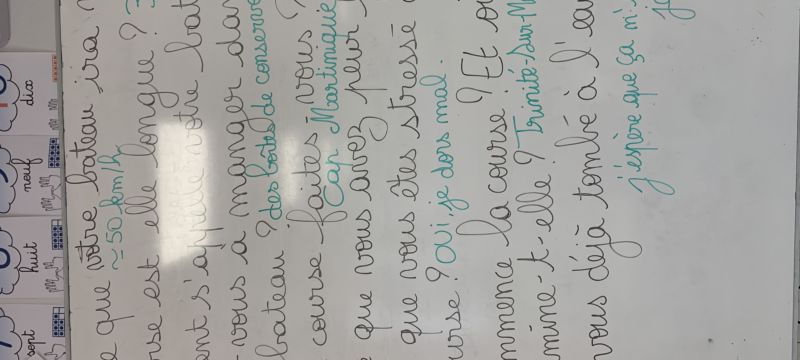 e que votre bateau ira
≃ 50 km/h
rse est elle longue ?
ent s'appelle votre bat
-vous à manger dan
bateau ? des boîtes de conserve
course faites-vous ?
Cap Martinique
que vous avez peur
que vous êtes stressé
urse ? Oui, je dors mal.
mmence la course ? Et où
mine-t-elle ? Trinité-Sur-M
vous déjà tombé à l'eau
j'espère que ça m'
dix
neuf
huit
sept